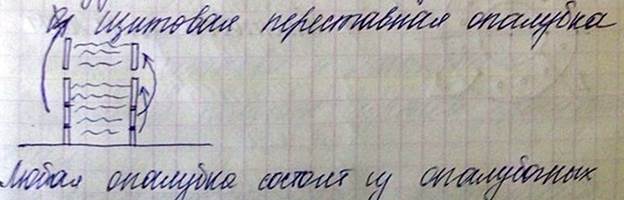 щитовая переставная опалубка
Любая опалубка состоит из опалубочных